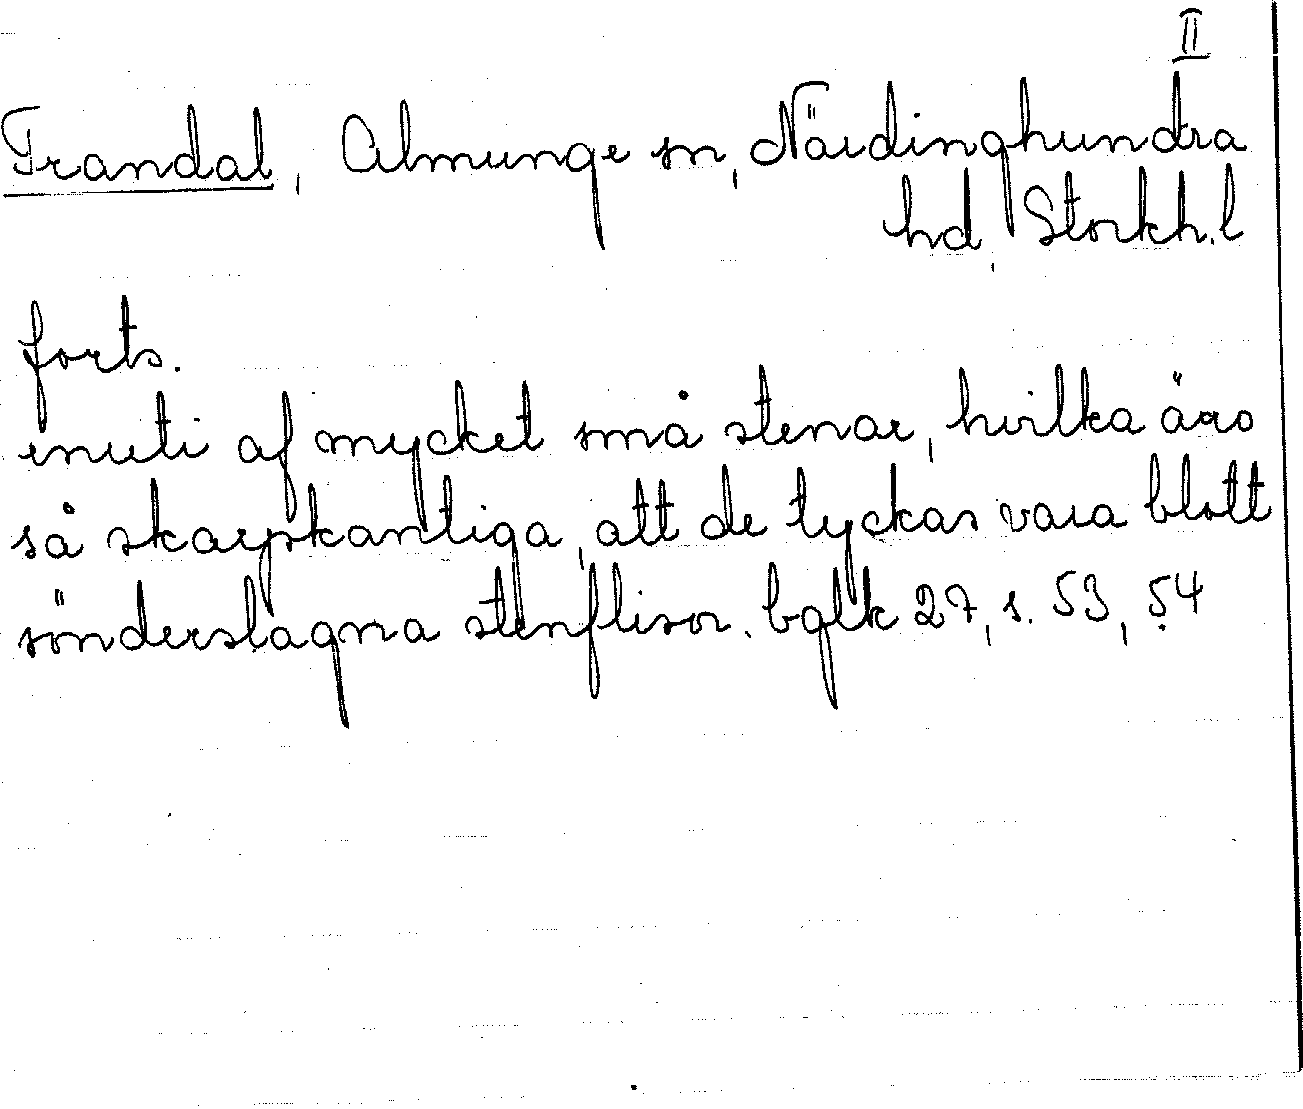 II
Trandal, Almunge sn, Närdinghundra
hd, Stockh. l
forts.
inuti af mycket små stenar, hvilka äro
så skarpkantiga, att de tyckas vara blott
sönderslagna stenflisor. bglk 27, s. 53, 54